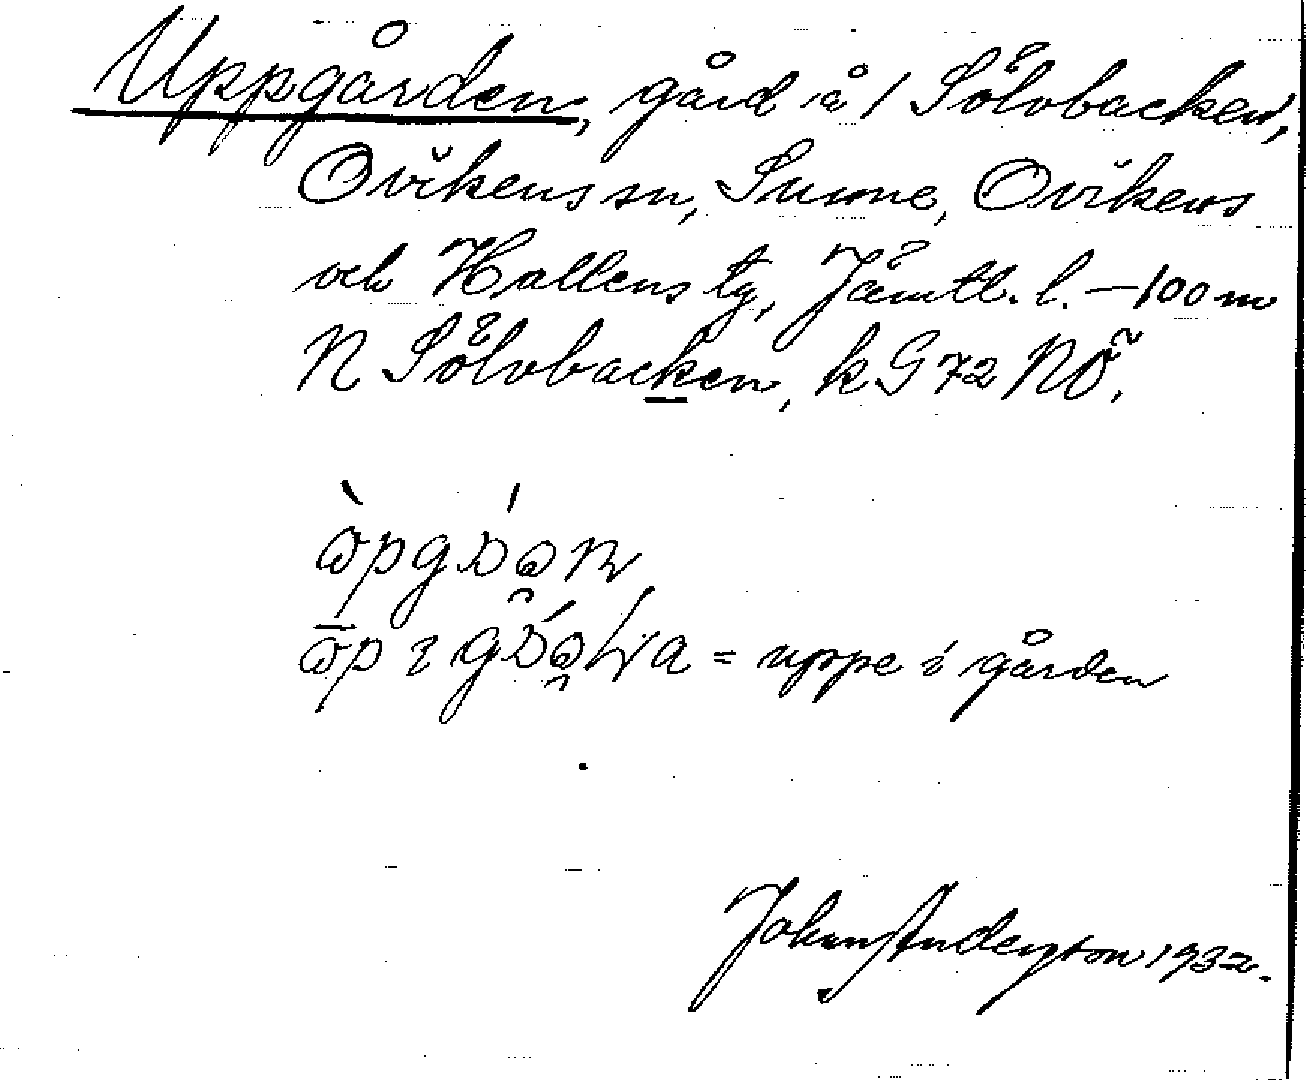 Uppgården, gård å 1 Sölvbacken,
Ovikens sn, Sunne, Ovikens
och Hallens tg, Jämtl. l. — 100 m
N Sölvbacken, k G 72 NÖ.
= uppe i gården
Johan Anderson 1932.